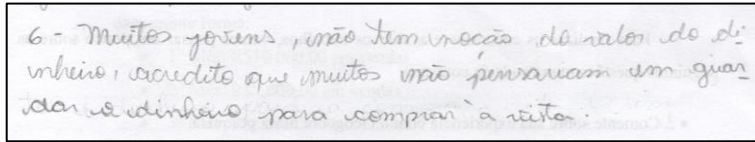 6- Muitos jovens, não tem noção do valor do di-
nheiro, acredito que muitos não pensariam em guar-
dar o dinheiro para comprar à vista.